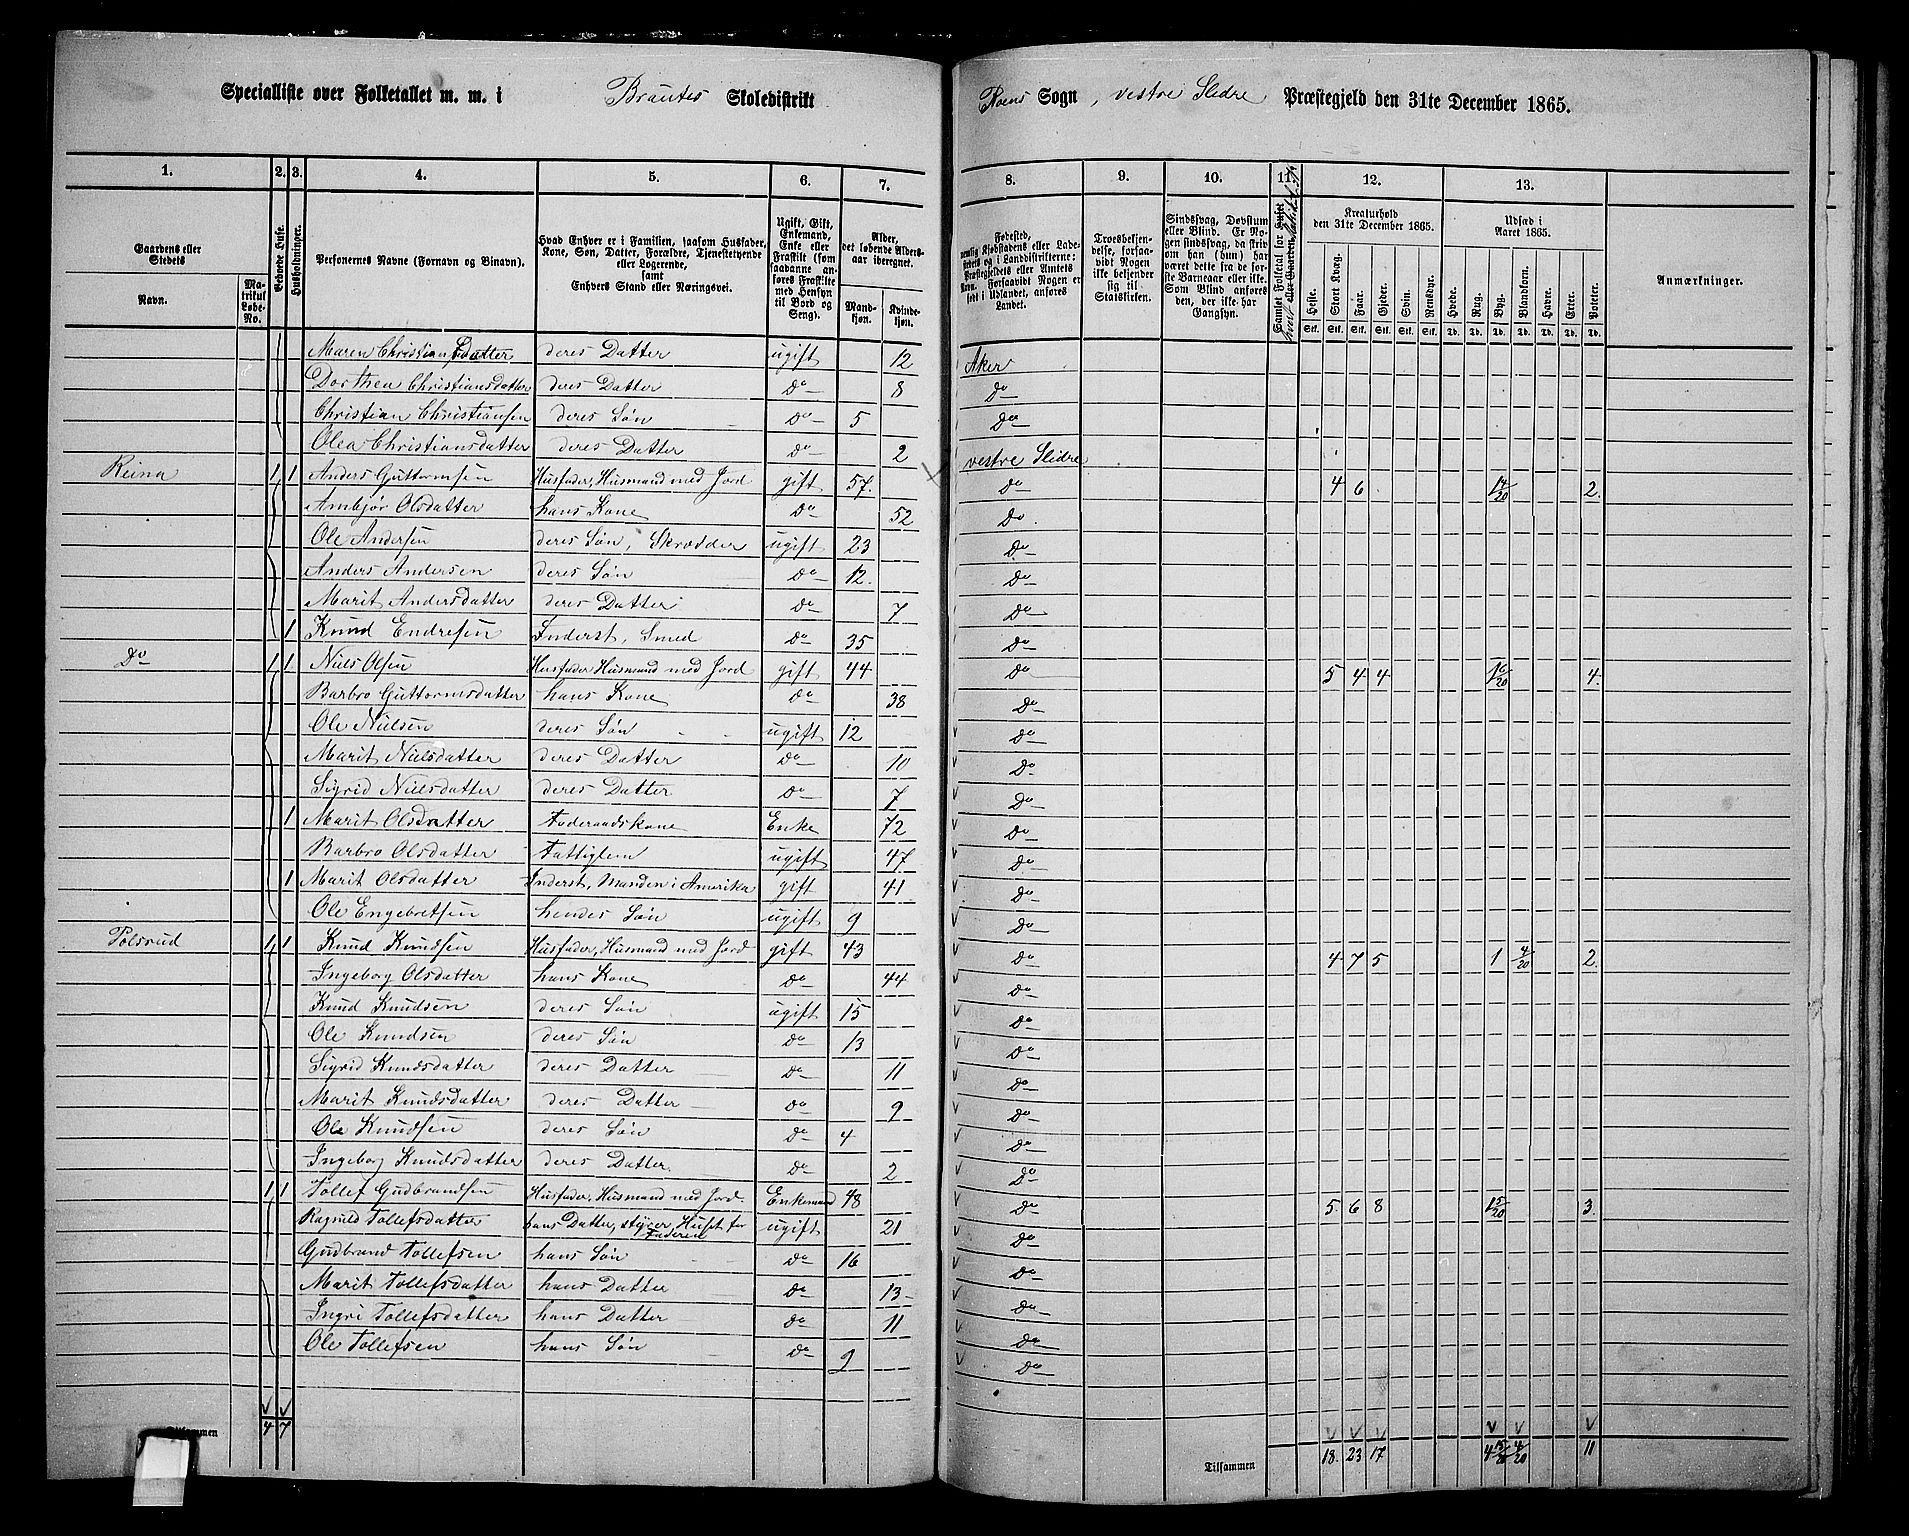 Specialliste over Folketallet m. m. i Brautes Skoledistrikt Roens Sogn, vestre Slidre Præstegjeld den 31te December 1865.
1. 2. 3. 4. 5. 6. 7. 8. 9. 10. 11. 12. 13.
Gaardens eller Stedets
Navn.
Matrikul Løbe-No.
Beboede Huse.
Husholdninger.
Personernes Navne (Fornavn og Binavn).
Hvad Enhver er i Familien, saasom Husfader, Kone, Søn, Datter, Forældre, Tjenestetyende eller Logerende, samt Enhvers Stand eller Næringsvei.
Ugift, Gift, Enkemand, Enke eller Fraskilt (som saadanne anføres Fraskilte med Hensyn til Bord og Seng).
Alder, det løbende Aldersaar iberegnet.
Mandkjøn. Kvindekjøn.
Fødested, nemlig Kjøbstadens eller Ladestedets og i Landdistrikterne: Præstegjeldets eller Amtets Navn. Forsaavidt Nogen er født i Udlandet, anføres Landet.
Troesbekjendelse, forsaavidt Nogen ikke bekjender sig til Statskirken.
Sindssvag, Døvstum eller Blind. Er Nogen sindssvag, da skrives om han (hun) har været det fra de første Barneaar eller ikke. Som Blind anføres den, der ikke har Gangsyn.
Samlet Folketal for Huset eller Gaarden
Kreaturhold den 31te December 1865.
Heste. Stort Kvæg. Faar. Gjeder. Svin. Rensdyr.
Udsæd i Aaret 1865.
Hvede. Rug. Byg. Blandkorn. Havre. Erter. Poteter.
Anmærkninger.
Maren Christiansdatter deres Datter ugift 12 Aker
Dorthea Christiansdatter deres Datter Do 8 Do
Christian Christiansen deres Søn Do 5 Do
Olea Christiansdatter deres Datter Do 2 vestre Slidre
Reina 1 1 Anders Guttormsen Husfader, Husmand med Jord gift 57 Do 4 6 14/20 2
Ambjør Olsdatter hans Kone Do 52 Do
Ole Andersen deres Søn, Skrædder ugift 23 Do
Anders Andersen deres Søn Do 12 Do
Marit Andersdatter deres Datter Do 7 Do
1 Knud Endresen Inderst, Smed Do 35 Do
Do 1 1 Niels Olsen Husfader Husmand med Jord gift 44 Do 5 4 4 1 16/20 4
Barbro Guttormsdatter hans Kone Do 38 Do
Ole Nielsen deres Søn ugift 12 Do
Marit Nielsdatter deres Datter Do 10 Do
Sigrid Nielsdatter deres Datter Do 7 Do
1 Marit Olsdatter Foderaadskone Enke 72 Do
Barbro Olsdatter Fattiglem ugift 47 Do
1 Marit Olsdatter Inderst, Manden i Amerika gift 41 Do
Ole Engebretsen hendes Søn ugift 9 Do
Polsrud 1 1 Knud Knudsen Husfader, Husmand med Jord gift 43 Do 4 7 5 1 4/20 2
Ingeborg Olsdatter hans Kone Do 44 Do
Knud Knudsen deres Søn ugift 15 Do
Ole Knudsen deres Søn Do 13 Do
Sigrid Knudsdatter deres Datter Do 11 Do
Marit Knudsdatter deres Datter Do 9 Do
Ole Knudsen deres Søn Do 4 Do
Ingeborg Knudsdatter deres Datter Do 2 Do
1 1 Tollef Gudbrandsen Husfader, Husmand med Jord Enkemand 48 Do 5 6 8 15/20 3
Ragnild Tollefsdatter hans Datter, styrer Huset for Faderen ugift 21 Do
Gudbrand Tollefsen hans Søn Do 16 Do
Marit Tollefsdatter hans Datter Do 13 Do
Ingri Tollefsdatter hans Datter Do 11 Do
Ole Tollefsen hans Søn Do 9 Do
Tilsammen 4 7 Tilsammen 18 23 17 4 15/20 4/20 11